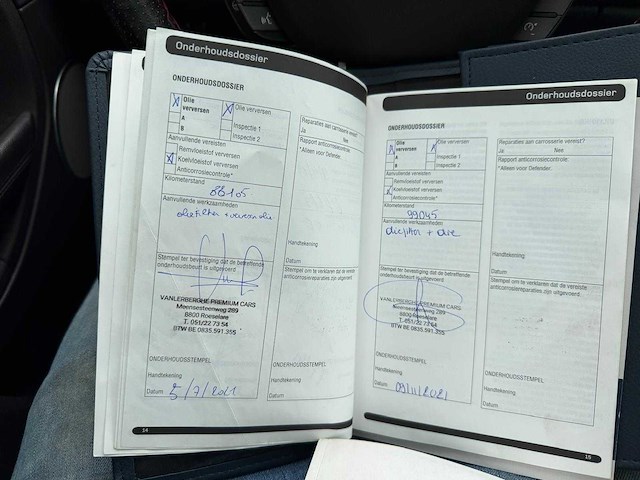 Onderhoudsdossier
ONDERHOUDSDOSSIER
X Olie verversen
X Olie verversen
A
B
Inspectie 1
Inspectie 2
Aanvullende vereisten
Remvloeistof verversen
X Koelvloeistof verversen
Anticorrosiecontrole*
Kilometerstand
86105
Aanvullende werkzaamheden
oliefilter + verversen olie
Stempel ter bevestiging dat de betreffende
onderhoudsbeurt is uitgevoerd
VANLERBERGHE PREMIUM CARS
Meensesteenweg 289
8800 Roeselare
T. 051/22 73 54
BTW BE 0835.591.355
ONDERHOUDSSTEMPEL
Handtekening
Datum 5/7/2021
Reparaties aan carrosserie vereist?
Ja Nee
Rapport anticorrosiecontrole:
*Alleen voor Defender.
Handtekening
Datum
Stempel om te verklaren dat de vereiste
anticorrosiereparaties zijn uitgevoerd:
ONDERHOUDSSTEMPEL
Handtekening
Datum
14
Onderhoudsdossier
ONDERHOUDSDOSSIER
Olie verversen
Olie verversen
A
B
Inspectie 1
Inspectie 2
Aanvullende vereisten
Remvloeistof verversen
Koelvloeistof verversen
Anticorrosiecontrole*
Kilometerstand
99045
Aanvullende werkzaamheden
oliefilter + olie
Stempel ter bevestiging dat de betreffende
onderhoudsbeurt is uitgevoerd
VANLERBERGHE PREMIUM CARS
Meensesteenweg 289
8800 Roeselare
T. 051/22 73 54
BTW BE 0835.591.355
ONDERHOUDSSTEMPEL
Handtekening
Datum 09/11/2021
Reparaties aan carrosserie vereist?
Ja Nee
Rapport anticorrosiecontrole:
*Alleen voor Defender.
Handtekening
Datum
Stempel om te verklaren dat de vereiste
anticorrosiereparaties zijn uitgevoerd:
ONDERHOUDSSTEMPEL
Handtekening
Datum
15